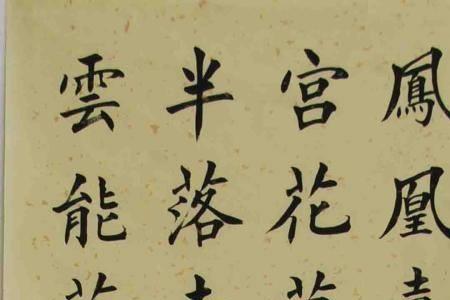 鳳凰
宫花
半落
雲能